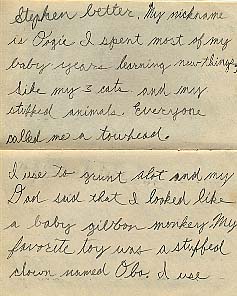 Stephen better. My nickname
is Oogie I spent most of my
baby years learning new things,
like my 3 cats and my
stuffed animals. Everyone
called me a towhead.
I use to grunt alot and my
Dad said that I looked like
a baby gibbon monkey. My
favorite toy was a stuffed
clown named Obo. I use